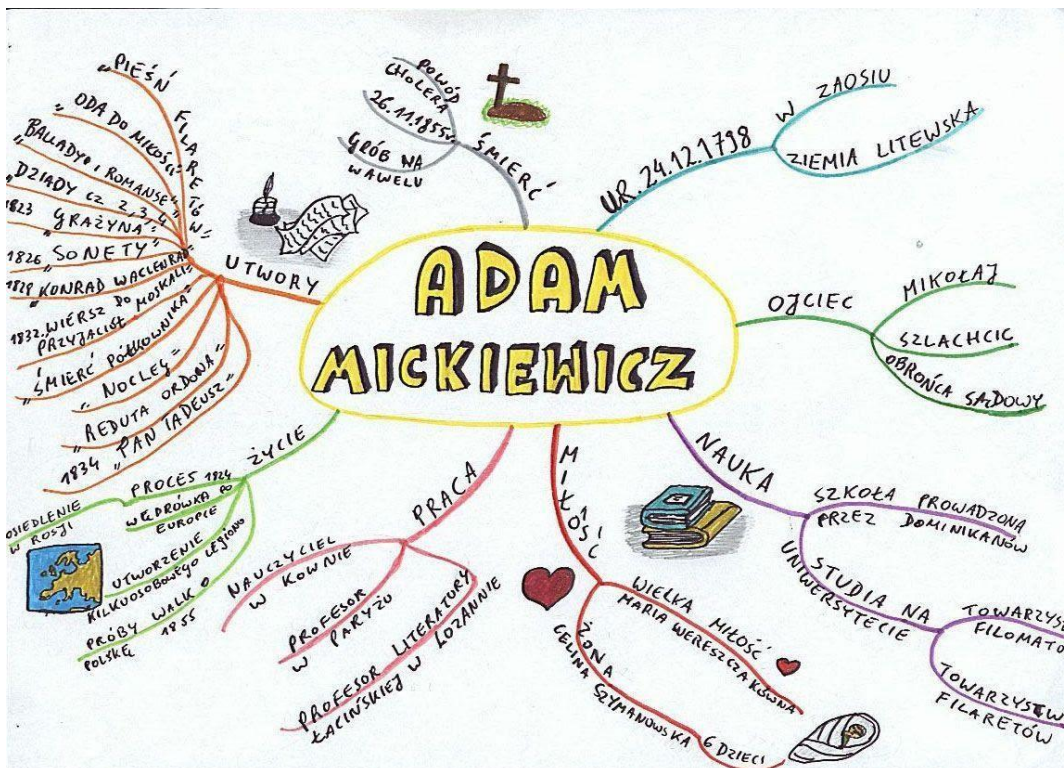 ADAM
MICKIEWICZ
UR. 24.12.1798
W ZAOSIU
ZIEMIA LITEWSKA
OJCIEC
MIKOŁAJ
SZLACHCIC
OBROŃCA SĄDOWY
NAUKA
SZKOŁA PROWADZONA
PRZEZ DOMINIKANÓW
STUDIA NA
UNIWERSYTECIE
TOWARZYS
FILOMATÓ
TOWARZYSTW
FILARETÓW
MIŁOŚĆ
I
WIELKA MIŁOŚĆ
MARIA WERESZCZAKÓWNA
ŻONA
CELINA SZYMANOWSKA
6 DZIECI
PRACA
NAUCZYCIEL
W KOWNIE
PROFESOR
W PARYŻU
PROFESOR LITERATURY
ŁACIŃSKIEJ W LOZANNIE
ŻYCIE
PROCES 1824
OSIEDLENIE
W ROSJI
WĘDRÓWKA PO
EUROPIE
UTWORZENIE
KILKUOSOBOWEGO LEGIONO
PRÓBY WALK O
POLSKĘ 1855
UTWORY
"PIEŚŃ FILARETÓW"
"ODA DO MŁOŚCI"
"BALLADY I ROMANSE"
"DZIADY CZ 2,3,4"
1823 "GRAŻYNA"
1826 "SONETY"
"KONRAD WACLENRAD"
1832. WIERSZ DO
PRZYJACIÓŁ MOSKALI
"ŚMIERĆ PÓŁKOWNIKA"
"NOCLEG"
"REDUTA ORDONA"
1834 "PAN TADEUSZ"
ŚMIERĆ
POWÓD
CHOLERA
26.11.1855r.
GRÓB NA
WAWELU